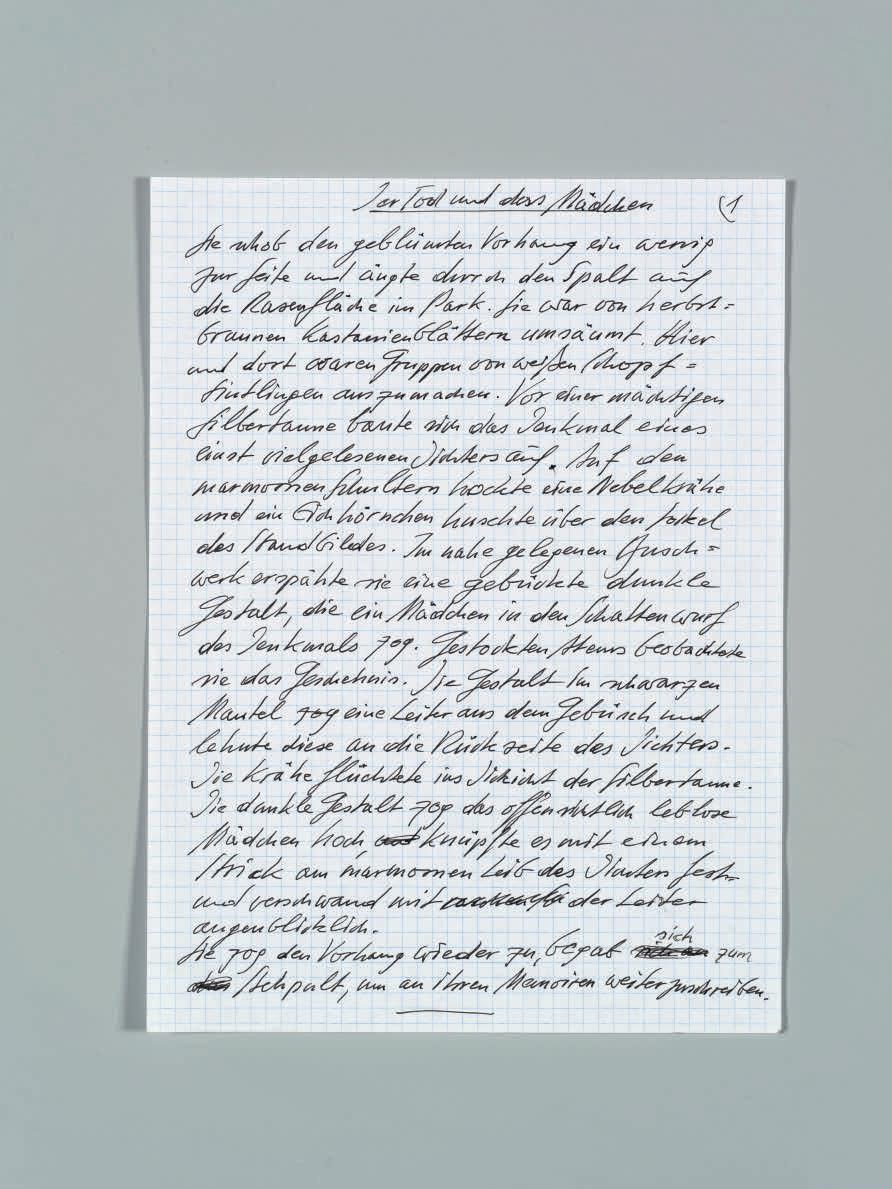 Der Tod und das Mädchen (1
Sie schob den geblümten Vorhang ein wenig
zur Seite und äugte durch den Spalt auf
die Rasenfläche im Park. Sie war von herbst=
braunen Kastanienblättern umsäumt. Hier
und dort waren Gruppen von weißen Schopf=
tintlingen auszumachen. Vor einer mächtigen
Silbertanne baute sich das Denkmal eines
einst vielgelesenen Dichters auf. Auf den
marmornen Schultern hockte eine Nebelkrähe
und ein Eichhörnchen huschte über den Sockel
des Standbildes. Im nahe gelegenen Busch=
werk erspähte sie eine gebückte dunkle
Gestalt, die ein Mädchen in den Schattenwurf
des Denkmals zog. Gestockten Atems beobachtete
sie das Geschehnis. Die Gestalt im schwarzen
Mantel zog eine Leiter aus dem Gebüsch und
lehnte diese an die Rückseite des Dichters.
Die Krähe flüchtete ins Dickicht der Silbertanne.
Die dunkle Gestalt zog das offensichtlich leblose
Mädchen hoch knüpfte es mit einem
Strick am marmornen Leib des Dichters fest
und verschwand mit der Leiter
augenblicklich.
Sie zog den Vorhang wieder zu, begab sich zum
Stehpult, um an ihren Memoiren weiterzuschreiben.